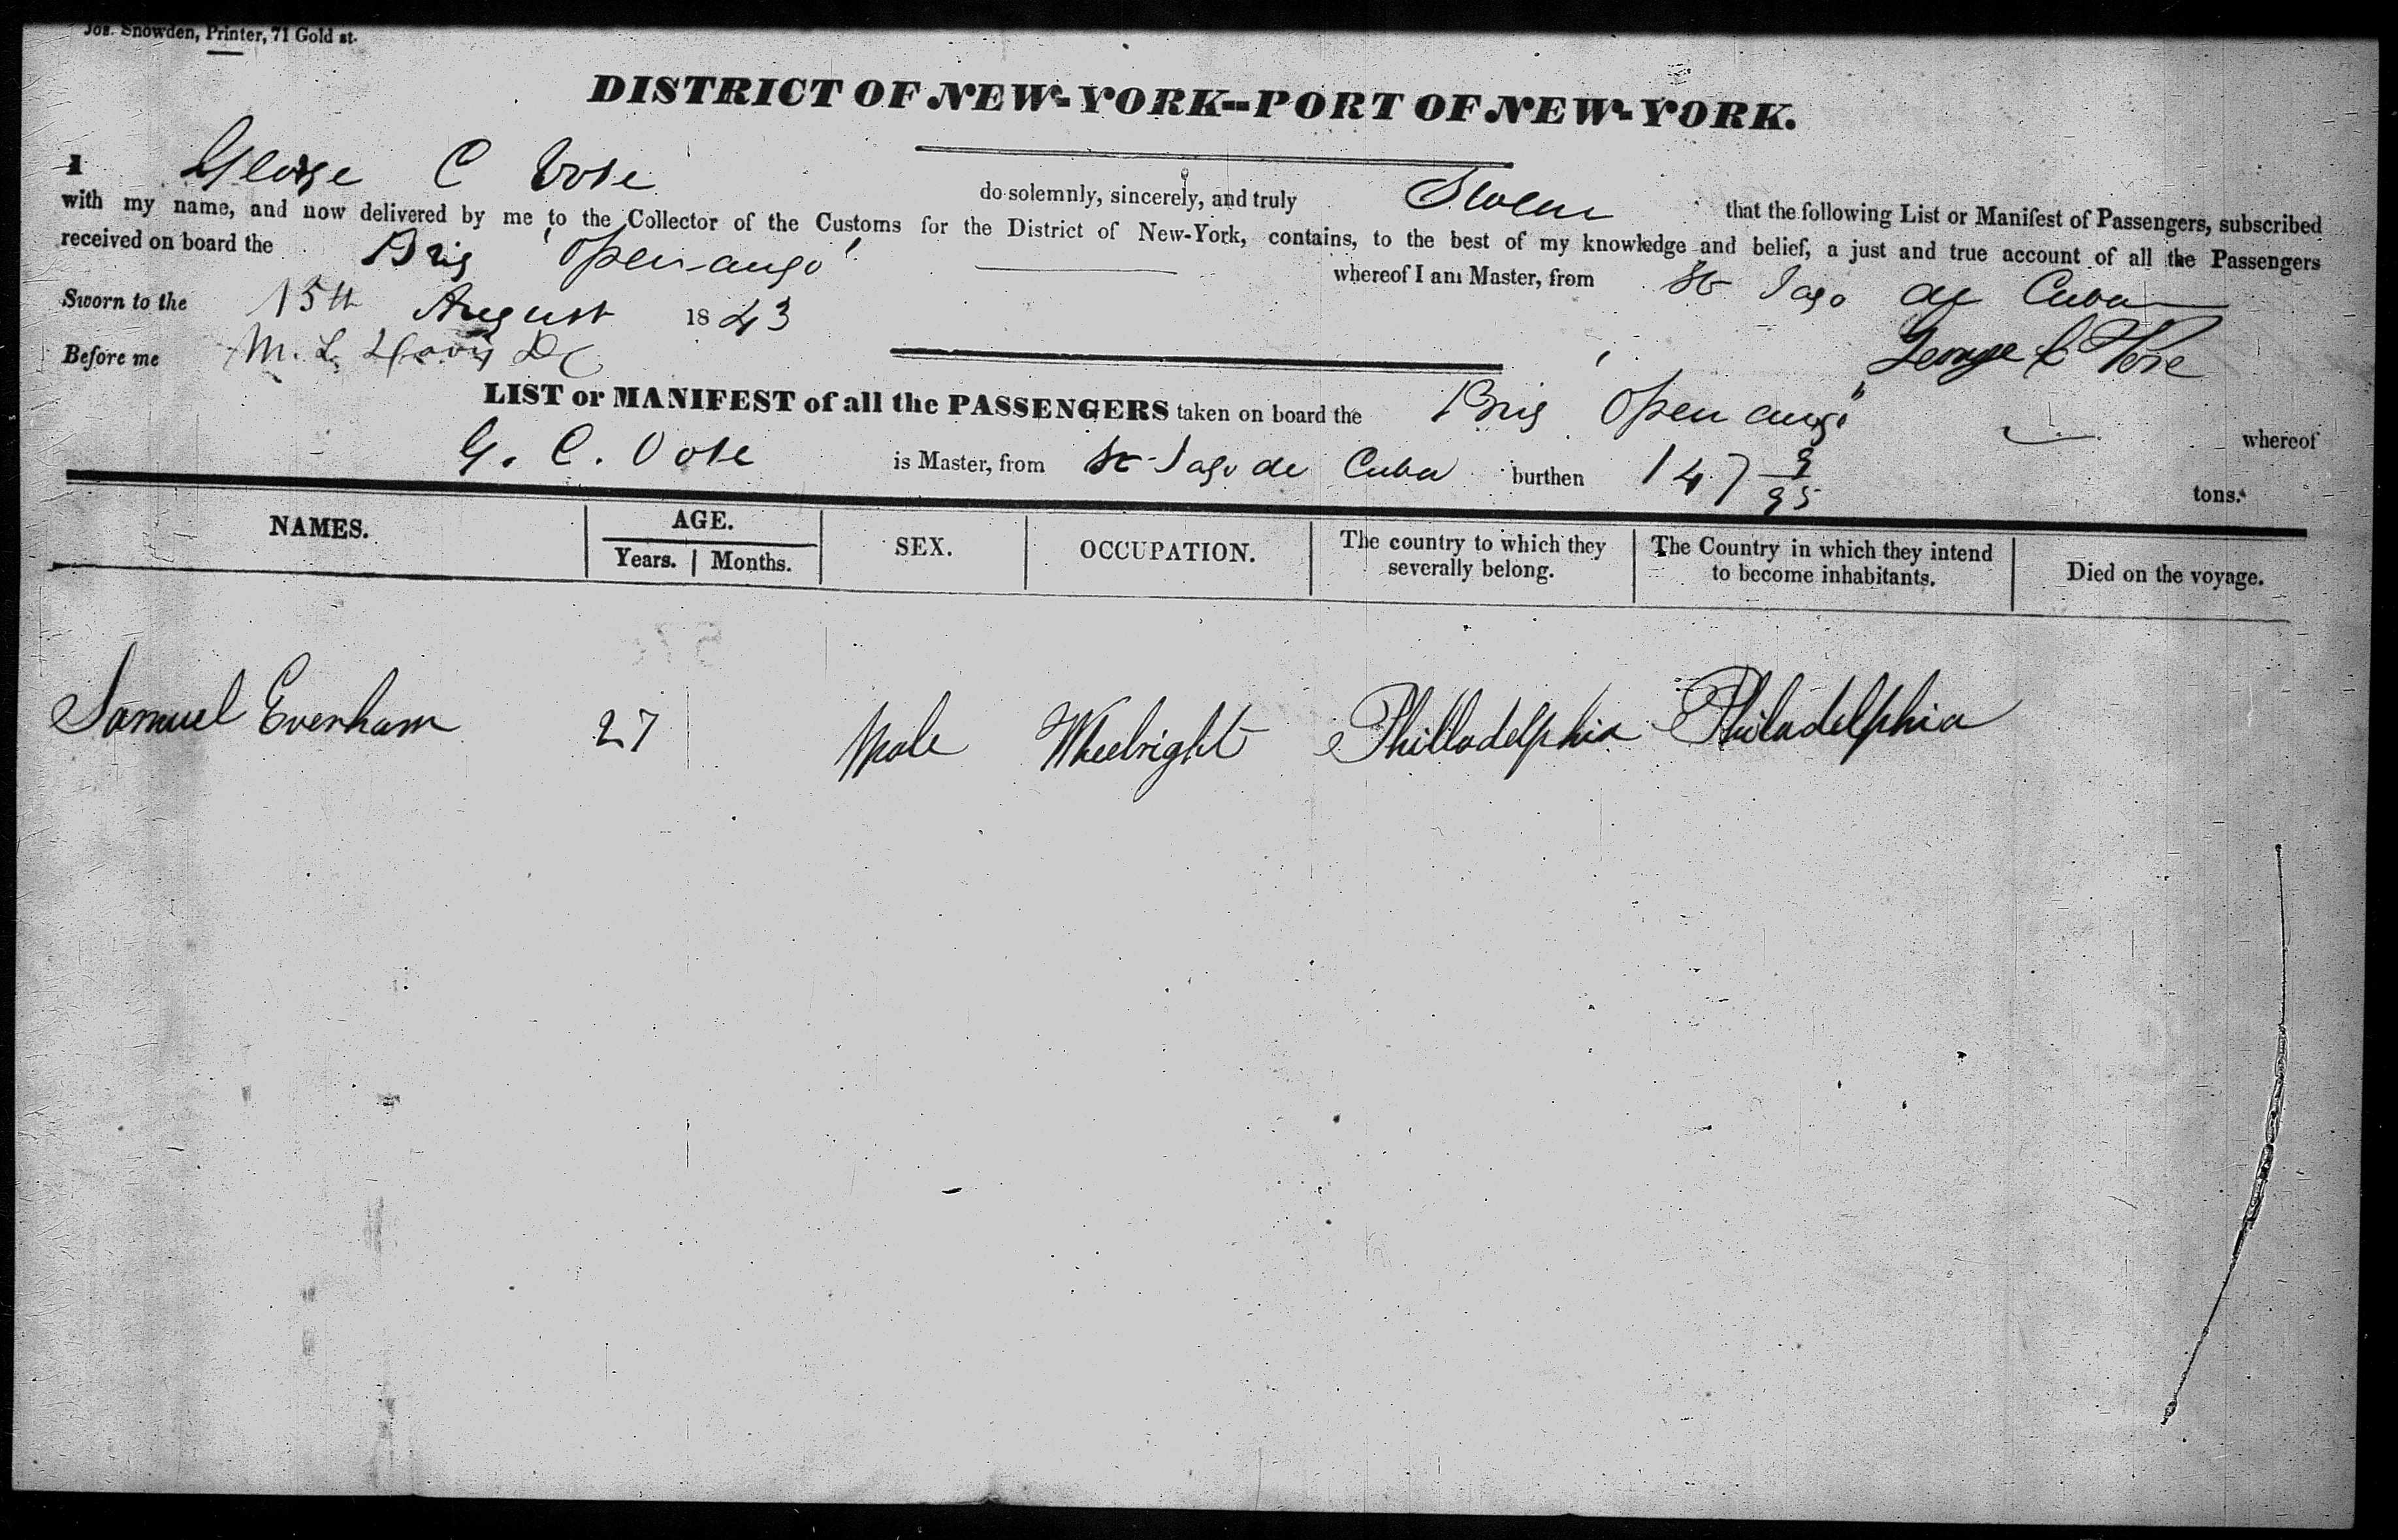 Jos. Snowden, Printer, 71 Gold st.
DISTRICT OF NEW-YORK--PORT OF NEW-YORK.
I George C Vose do solemnly, sincerely, and truly Swear that the following List or Manifest of Passengers, subscribed
with my name, and now delivered by me to the Collector of the Customs for the District of New-York, contains, to the best of my knowledge and belief, a just and true account of all the Passengers
received on board the Brig "Open-ango" whereof I am Master, from St Iago de Cuba
Sworn to the 15th August 1843
George C Vose
Before me M. L. Davis DC
LIST or MANIFEST of all the PASSENGERS taken on board the Brig "Open ango" whereof
G. C. Vose is Master, from St Iago de Cuba burthen 147 9/95 tons.
NAMES. AGE. Years. Months. SEX. OCCUPATION. The country to which they severally belong. The Country in which they intend to become inhabitants. Died on the voyage.
Samuel Evenham 27 Male Wheelright Philladelphia Philadelphia